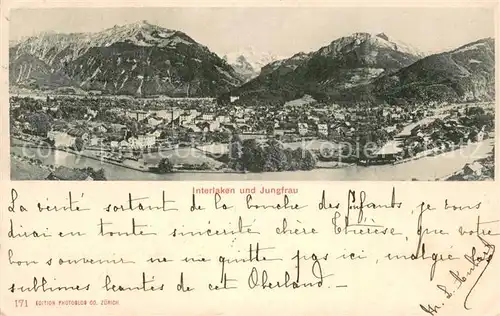 Interlaken und Jungfrau
La vérité sortant de la bouche des Enfants, je vous
dirai en toute sincérité chère Thérèse, que votre
bon souvenir ne me quitte pas ici, malgré les
sublimes beautés de cet Oberland. —
171 EDITION PHOTOGLOB CO. ZÜRICH.